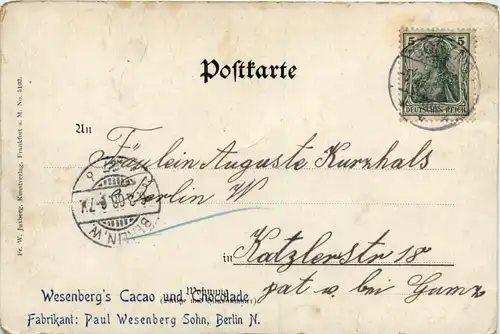 5 5
DEUTSCHES REICH
Postkarte
Fr. W. Juxberg, Kunstverlag, Frankfurt a. M. No. 5192.
An
Fräulein Auguste Kurzhals
Berlin W
BERLIN, W.
in Katzlerstr 18
pat u. bei Gumz
Wohnung
Wesenberg's Cacao und Chocolade
Fabrikant: Paul Wesenberg Sohn, Berlin N.